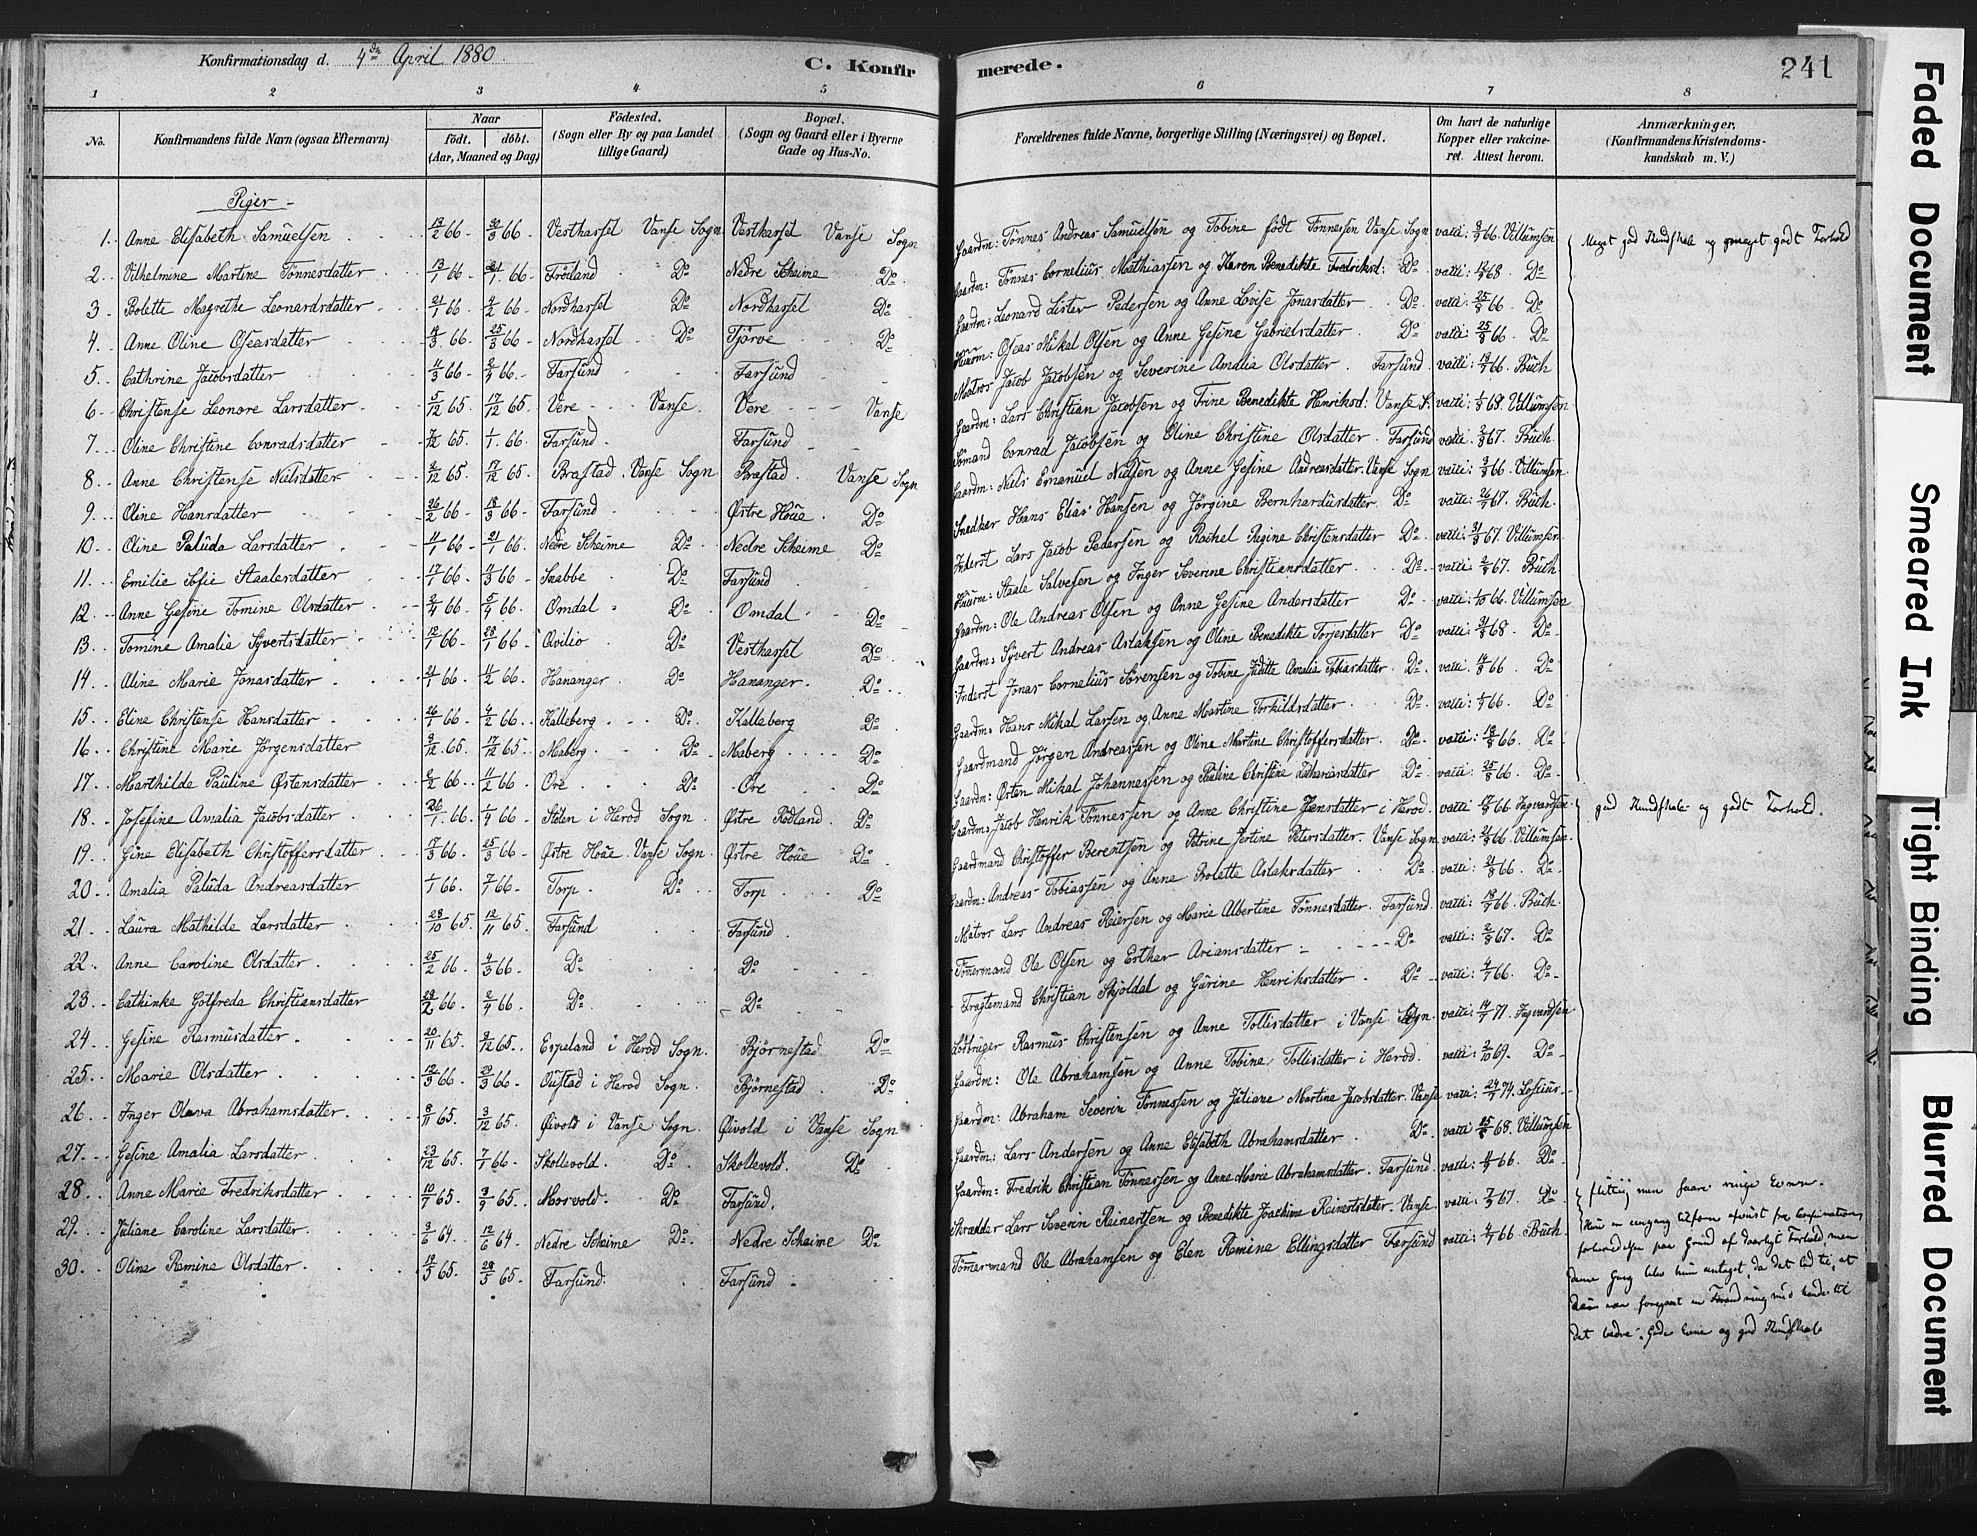 Konfirmationsdag d. 4de April 1880. C. Konfir merede. 241
1 2 3 4 5 6 7 8
No. Konfirmandens fulde Navn (ogsaa Efternavn) Naar født. døbt. (Aar, Maaned og Dag) Fødested. (Sogn eller By og paa Landet tillige Gaard) Bopæl. (Sogn og Gaard eller i Byerne Gade og Hus-No. Forældrenes fulde Navne, borgerlige Stilling (Næringsvei) og Bopæl. Om havt de naturlige Kopper eller vakcineret. Attest herom. Anmærkninger. (Konfirmandens Kristendomskundskab m. V.)
Piger
1. Anne Elisabeth Samuelsen 13/2 66 30/3 66 Vesthassel Vanse Sogn Vesthassel Vanse Sogn Gaardm: Tønnes Andreas Samuelsen og Tobine født Tønnesen Vanse Sogn vacci: 66. Villumsen Meget god Kundskab og meget godt Forhold
2. Vilhelmine Martine Tønnesdatter 66 66 Frøiland Do Nedre Scheime Do Gaardm: Tønnes Cornelius Mathiassen og Karen Benedikte Fredriksd: Do vacci: 68. Do
3. Bolette Magrethe Leonardsdatter 21/1 66 2/2 66 Nordhassel Do Nordhassel Do Gaardm: Leonard Lister Pedersen og Anne Lovise Jonasdatter Do vacci: 25/8 66 Do
4. Anne Oline Oseasdatter 66 25/3 66 Nordhassel Do Tjørve Do Huusm: Oseas Mikal Olsen og Anne Gesine Gabrielsdatter Do vacci: 25/8 66 Do
5. Cathrine Jacobsdatter 66 66 Farsund Farsund Matros Jacob Jacobsen og Severine Amalia Olsdatter Farsund vacci: 66. Buch
6. Christense Leonore Larsdatter 5/12 65 17/12 65 Vere Vanse Vere Vanse Gaardm: Lars Christian Jacobsen og Trine Benedikte Henriksd: Vanse S. vacci: 68. Villumsen
7. Oline Christine Conradsdatter 65 1/1 66 Farsund Farsund Sømand Conrad Jacobsen og Oline Christine Olsdatter Farsund vacci: 67. Buch
8. Anne Christense Nielsdatter 2/12 65 17/12 65 Brastad Vanse Sogn Brastad Vanse Sogn Gaardm: Niels Emanuel Nielsen og Anne Gesine Andreasdatter Vanse Sogn vacci: 66. Villumsen
9. Oline Hansdatter 26/2 66 18/3 66 Farsund Østre Houe Do Snedker Hans Elias Hansen og Jørgine Bernhardusdatter Do vacci: 67. Buch
10. Oline Paluda Larsdatter 11/1 66 21/1 66 Nedre Scheime Do Nedre Scheime Do Inderst Lars Jacob Pedersen og Rachel Regine Christensdatter Do vacci: 67. Villumsen
11. Emilie Sofie Staalesdatter 17/1 66 66 Snabbe Do Farsund Huusm: Staale Salvesen og Inger Severine Christiansdatter Do vacci: 67. Buch
12. Anne Gesine Tomine Olsdatter 2/4 66 5/4 66 Omdal Do Omdal Do Gaardm: Ole Andreas Olsen og Anne Gesine Andersdatter Do vacci: 1/10 66. Villumsen
13. Tomine Amalia Syvertsdatter 12/1 66 28/1 66 Qvilio Do Vesthassel Do Gaardm: Syvert Andreas Aslaksen og Oline Benedikte Torjesdatter Do vacci: 68. Do
14. Aline Marie Jonasdatter 21/1 66 11/2 66 Hananger Do Hananger Do Inderst Jonas Cornelius Sørensen og Tobine Juditte Amalia Tobiasdatter Do vacci: 66 Do
15. Eline Christense Hansdatter 26/1 66 4/2 66 Kalleberg Do Kalleberg Do Gaardm: Hans Mikal Larsen og Anne Martine Torkildsdatter Do vacci: 66. Do
16. Christine Marie Jørgensdatter 3/12 65 17/12 65 Maberg Do Maberg Do Gaardmand Jørgen Andreassen og Oline Martine Christoffersdatter Do vacci: 66. Do
17. Marthilde Pauline Østensdatter 2/2 66 11/2 66 Ore Do Ore Do Gaardm: Østen Mikal Johannessen og Pauline Christine Zakariasdatter Do vacci: 25/8 66 Do
18. Josefine Amalia Jacobsdatter 26/1 66 1/4 66 Stølen i Herod Sogn Østre Rødland Do Gaardm: Jacob Henrik Tønnessen og Anne Christine Hansdatter i Herod vacci: 66 Ingvardsen god Kundskab og godt Forhold.
19. Gine Elisabeth Christoffersdatter 66 25/3 66 Østre Houe Vanse Sogn Østre Houe Do Gaardmand Christoffer Berentsen og Petrine Jertine Petersdatter Vanse Sogn vacci: 66 Villumsen
20. Amalia Paluda Andreasdatter 1/1 66 7/1 66 Torp Do Torp Do Gaardm: Andreas Tobiassen og Anne Bolette Aslaksdatter Do vacci: 66 Do
21. Laura Mathilde Larsdatter 28/10 65 12/11 65 Farsund Farsund Matros Lars Andreas Reiersen og Marie Albertine Tønnesdatter Farsund vacci: 66. Buch
22. Anne Caroline Olsdatter 25/2 66 4/3 66 Do Do Tømermand Ole Olsen og Esther Ariansdatter Do vacci: 67. Do
23. Cathinke Gotfreda Christiansdatter 23/2 66 2/4 66 Do Do Fragtemand Christian Skjoldal og Gurine Henriksdatter Do vacci: 66. Do
24. Gesine Rasmusdatter 20/11 65 3/12 65 Espeland i Herod Sogn Bjørnestad Do Rasmus Christensen og Anne Tollisdatter i Vanse Sogn vacci: 71. Ingvardsen
25. Marie Olsdatter 12/3 66 66 Oustad i Herod Sogn Bjørnestad Do Gaardm: Ole Abrahamsen og Anne Tobine Tollisdatter i Herod. vacci: 69. Do
26. Inger Olava Abrahamsdatter 8/11 65 3/12 65 Øivold i Vanse Sogn Øivold i Vanse Sogn Gaardm: Abraham Severin Tønnessen og Juliane Martine Jacobsdatter Vanse vacci: 74. Losius
27. Gesine Amalia Larsdatter 23/12 65 7/1 66 Skollevold Do Skollevold Do Gaardm: Lars Andersen og Anne Elisabeth Abrahamsdatter Do vacci: 68. Villumsen
28. Anne Marie Fredriksdatter 10/7 65 65 Mosvold Do Farsund Gaardm: Fredrik Christian Tønnessen og Anne Marie Abrahamsdatter Farsund vacci: 66. Do flittig men svære ringe Evner.
29. Juliane Caroline Larsdatter 3/6 64 12/6 64 Nedre Scheime Do Nedre Scheime Do Skrædder Lars Severin Reinertsen og Benedikte Joachine Reinertsdatter Vanse vacci: 67. Do Hun en engang tilforn afvist fra Confirmations
30. Oline Remine Olsdatter 65 28/5 65 Farsund Farsund Tømermand Ole Abrahamsen og Elen Remine Ellingsdatter Farsund vacci: 66 Buch
forberedelsen paa Grund af daarligt Forhold men
denne Gang blev hun antaget, da det lod til, at
der var foregaaet en Forandring med hende til
det bedre. Gode Evne og god Kundskab
Faded Document
Smeared Ink
Tight Binding
Blurred Document